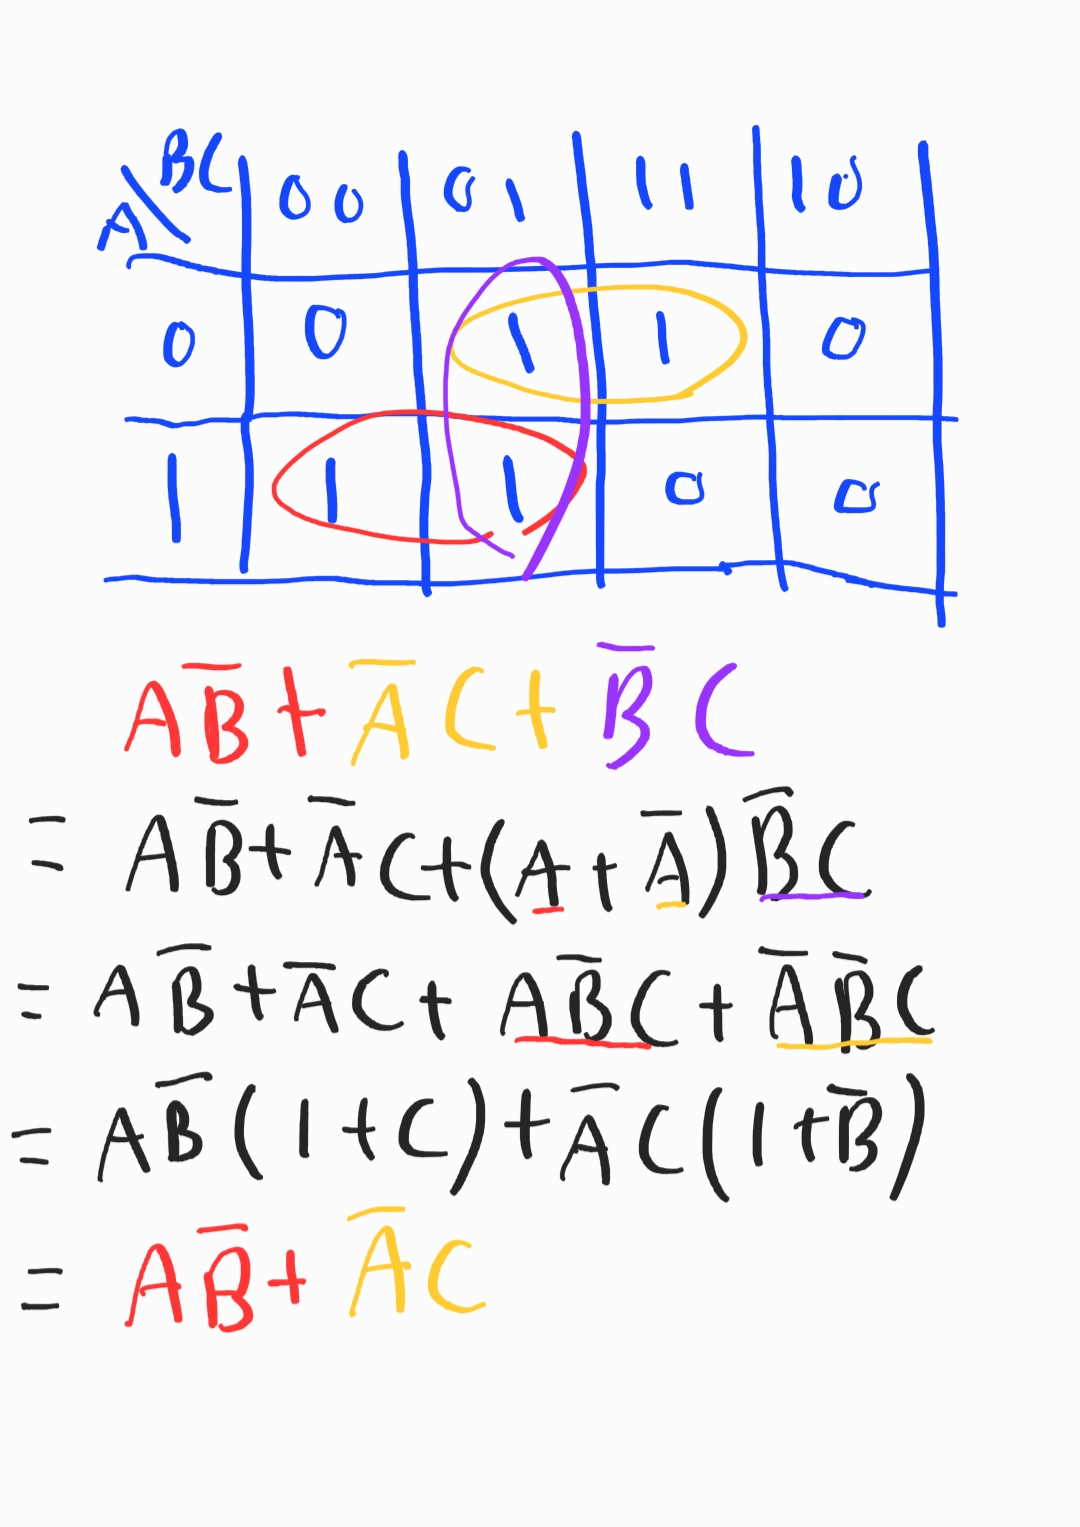 A\BC 00 01 11 10
0 0 1 1 0
1 1 1 0 0
AB̅ + A̅C + B̅C
= AB̅ + A̅C + (A + A̅)B̅C
= AB̅ + A̅C + AB̅C + A̅B̅C
= AB̅(1+C) + A̅C(1+B̅)
= AB̅ + A̅C